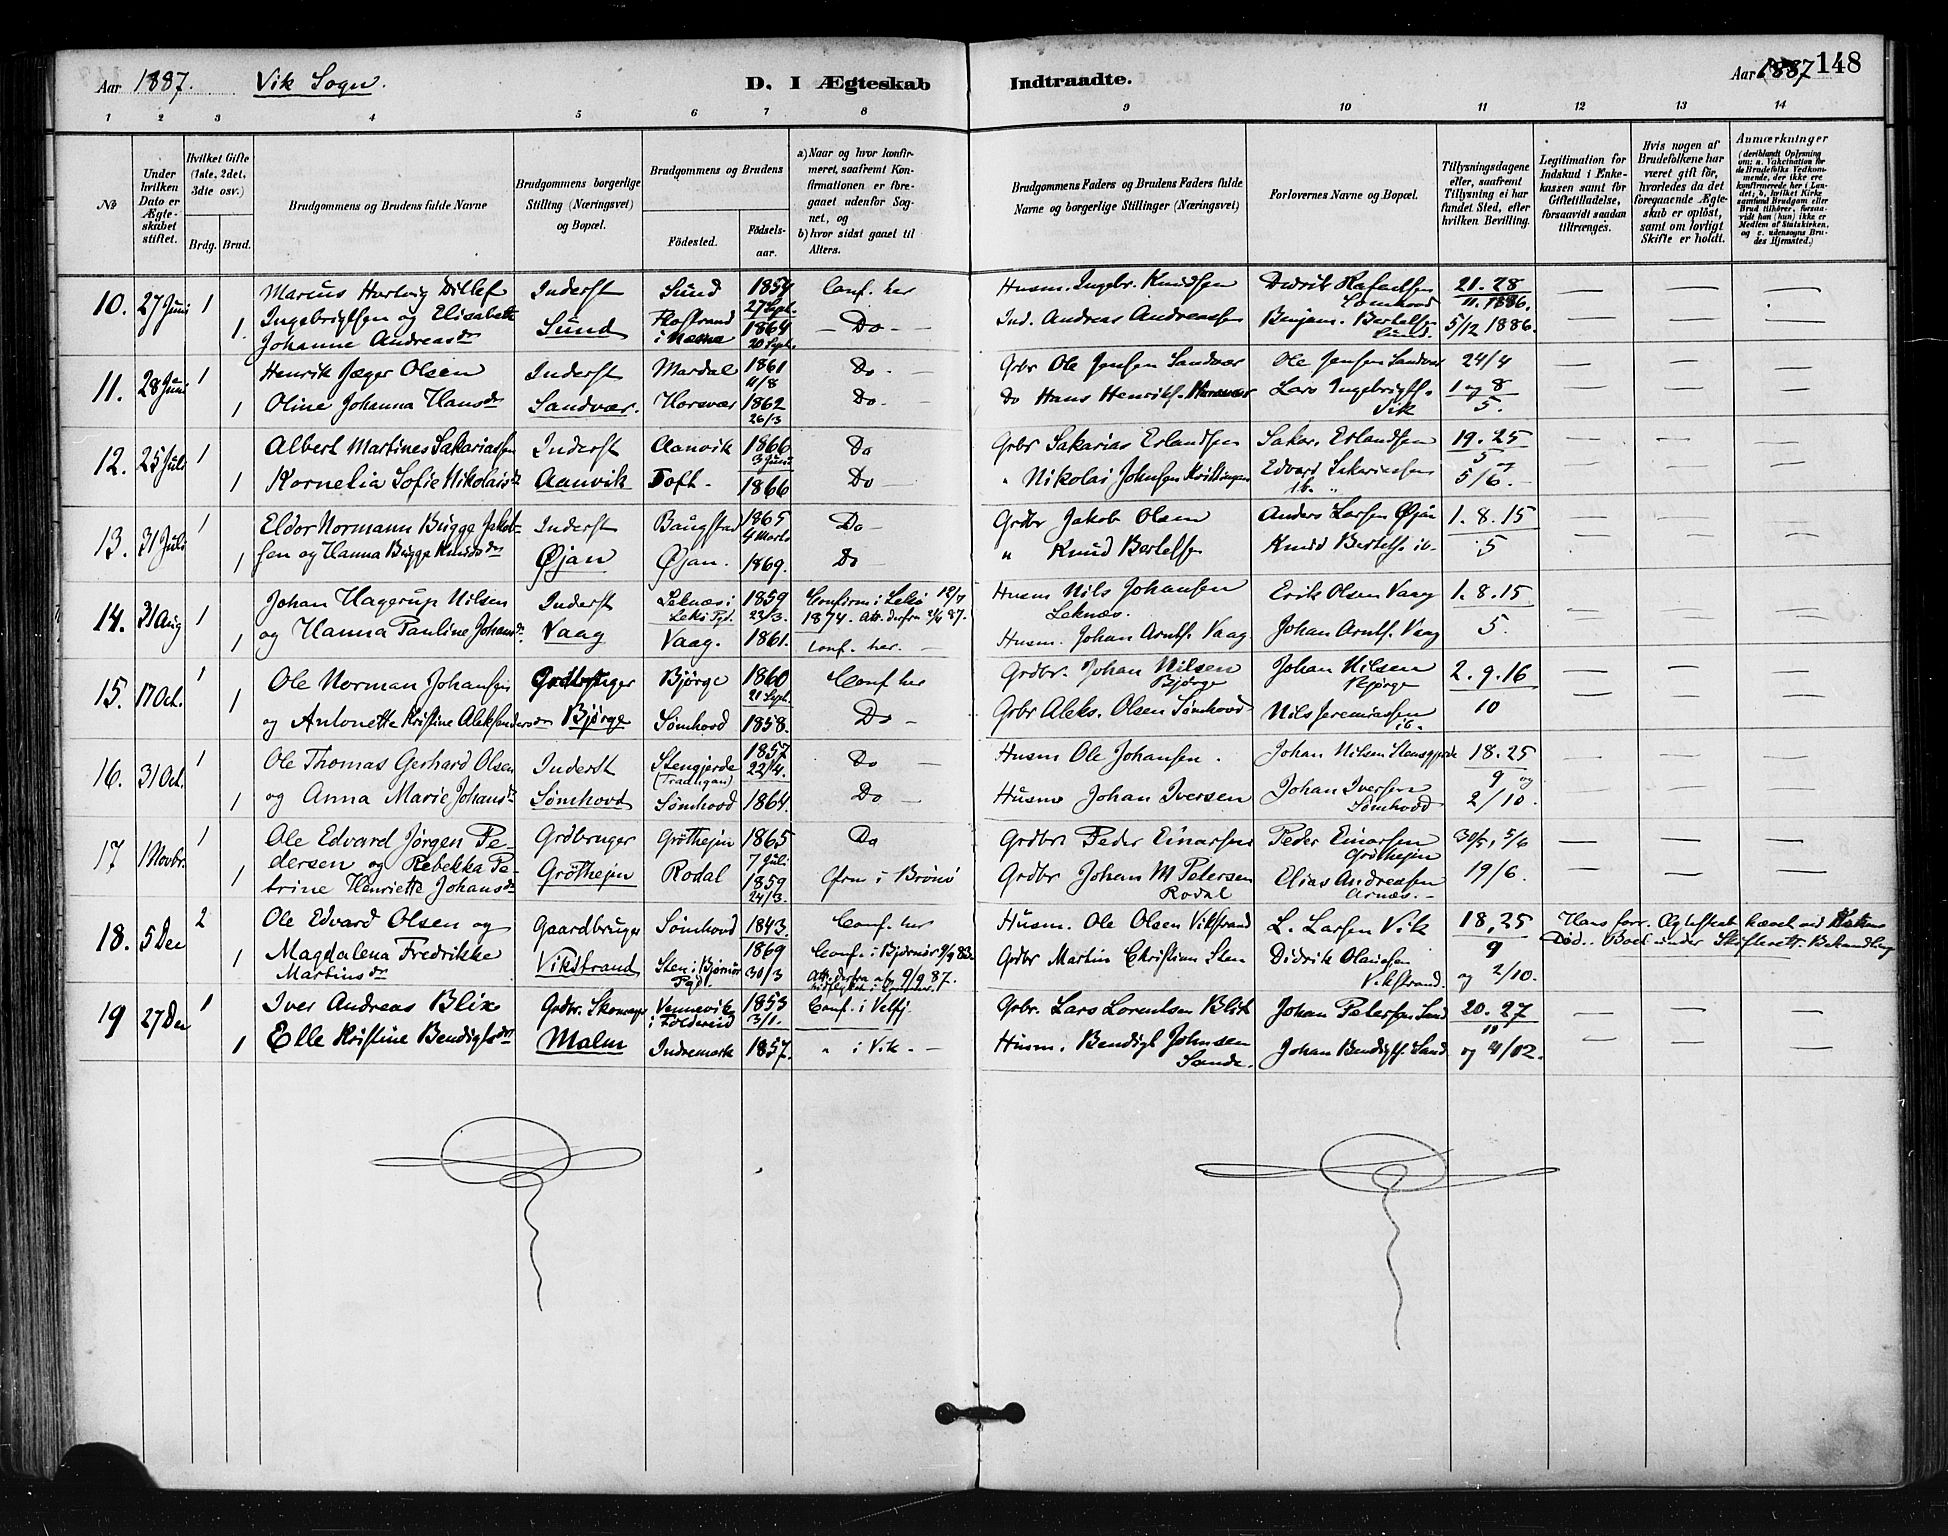 Aar 1887. Vik Sogn. D. I Ægteskab Indtraadte. Aar 1887 148
1 2 3 4 5 6 7 8 9 10 11 12 13 14
No
Under hvilken Dato er Ægteskabet stiftet.
Hvilket Gifte (1ste, 2det, 3die osv.)
Brdg. Brud.
Brudgommens og Brudens fulde Navne
Brudgommens borgerlige Stilling (Næringsvei) og Bopæl.
Brudgommens og Brudens
Fødested. Fødselsaar.
a) Naar og hvor konfirmeret, saafremt Konfirmationen er foregaaet udenfor Sognet, og
b) hvor sidst gaaet til Alters.
Brudgommens Faders og Brudens Faders fulde Navne og borgerlige Stillinger (Næringsvei)
Forlovernes Navne og Bopæl.
Tillysningsdagene eller, saafremt Tillysning ei har fundet Sted, efter hvilken Bevilling.
Legitimation for Indskud i Enkekassen samt for Giftetilladelse, forsaavidt saadan tiltrænges.
Hvis nogen af Brudefolkene har været gift før, hvorledes da det foregaaende Ægteskab er opløst, samt om lovligt Skifte er holdt.
Anmærkninger
(deriblandt Oplysning om: a. Vakcination for de Brudefolks Vedkommende, der ikke ere konfirmerede her i Landet; b. hvilket Kirkesamfund Brudgom eller Brud tilhører, forsaavidt han (hun) ikke er Medlem af Statskirken, og c. udensogns Brudes Hjemsted.)
10. 27 Juni 1 Marius Hartvig Ditlef Inderst Sund 1857 Conf. her Husm. Ingebr. Knudsen Didrik Rafaelsen 21. 28
Ingebrigtsen og Elisabeth Sund 27 Sept. Sømhovd 11. 1886.
1. Johanne Andreasdr Flostrand i Næsna 1864 20 Sept. — Do — Ind. Andreas Andreassen Benjam. Bertelsen Sund. 5/12 1886.
11. 28 Juni 1 Henrik Jæger Olsen Inderst Mardal 1861 11/8 Do — Grbr Ole Jensen Sandvær Ole Jensen Sandvær 24/4
1 Oline Johanna Hansdr Sandvær. Horsvær 1862 26/3 Do — Do Hans Henriks. Horsvær Lars Ingebrigts. Vik 1 og 8 5.
12. 25 Juli 1 Albert Martines Sakariassen Inderst Aanvik 1866 3 Juni Do Grbr Sakarias Erlandsen Sakar. Erlandsen 19. 25 5
1 Kornelia Sofie Nikolaisdr Aanvik Toft. 1866 Do — " Nikolai Johnsen Edvard Sakariassen ib. 5/6.
13. 31 Juli 1 Eldor Normann Bugge Jakob- Inderst Baugstad 1865 4 Marts Do — Grdbr Jakob Olsen Anders Larsen Øjan 1. 8. 15
1 sen og Hanna Bugge Knudsdr Øjan Øjan. 1869. Do — " Knud Bertelsen Knud Bertels. ib. 5
14. 31 Aug 1 Johan Hagerup Nilsen Inderst Leknæs i Lekø Pgd. 1859 22/3. Confirm i Lekø 12/7 1874. Att. derfra 24/6 87. Husm Nils Johansen Leknæs. Erik Olsen Vaag 1. 8. 15
1 og Hanna Pauline Johansdr. Vaag Vaag. 1861. conf. her. — Husm. Johan Arnts. Vaag Johan Arnts. Vaag 5.
15. 17 Oct. 1 Ole Norman Johansen Grdbruger Bjørge 1860 21 Sept. Conf her Grdbr. Johan Nilsen Bjørge Johan Nilsen Bjørge 2. 9. 16
1 og Antonette Kristine Aleksandersdr Bjørge Sømhovd 1858. Do — Grbr Aleks. Olsen Sømhovd Nils Jeremiassen ib. 10
16. 31 Oct. 1 Ole Thomas Gerhard Olsen Inderst Stengjerde 1857 22/4. Do — Husm Ole Johansen. Johan Nilsen Stensgjerde 18. 25 9 og
1 og Anna Marie Johansdr Sømhovd Sømhovd 1864. Do — Husm Johan Iversen Johan Iversen Sømhovd 2/10.
17 1 Novbr. 1 Ole Edvard Jørgen Pe- Grdbruger Grøthejen 1865 7 Juli Do Grdbr Peder Einarsen Peder Einarsen Grøthejen 30/5, 5/6
dersen og Rebekka Pe- Grøthejen
1 trine Henriette Johansdr Rodal 1859 24/3. Cfrm i Brønø Grdbr Johan M Petersen Rodal Elias Andreasen Arnæs. — 19/6.
18. 5 Dec 2 Ole Edvard Olsen og Gaardbruger Sømhovd 1843. Conf. her Husm. Ole Olsen Vikstrand L. Larsen Vik 18, 25 9 Hans forr. Ægteskab hævet ved Død. Boet under Skifterettr. Behandling
Magdalena Fredrikke Vikstrand Sten i Bjørnør Pgd. 1869 30/3 Conf. i Bjørnør Grdbr Martin Christian Sten Didrik Olaisen Vikstrand. og 2/10.
Martinsdr Att. derfra af 9/9 87.
19 27 Dec 1 Iver Andreas Blix Grdbr. Skomager Vennevik i Foldereid 1853 3/1. Conf. i Velfj. Grbr. Lars Lorentsen Blix Johan Petersen Sund 20. 27 11
1 Elle Kristine Bendigtsdr Malm Indremark 1857. " i Vik. — Husm. Bendigt Johnsen Sande. Johan Bendigts. Sand og 4/12.